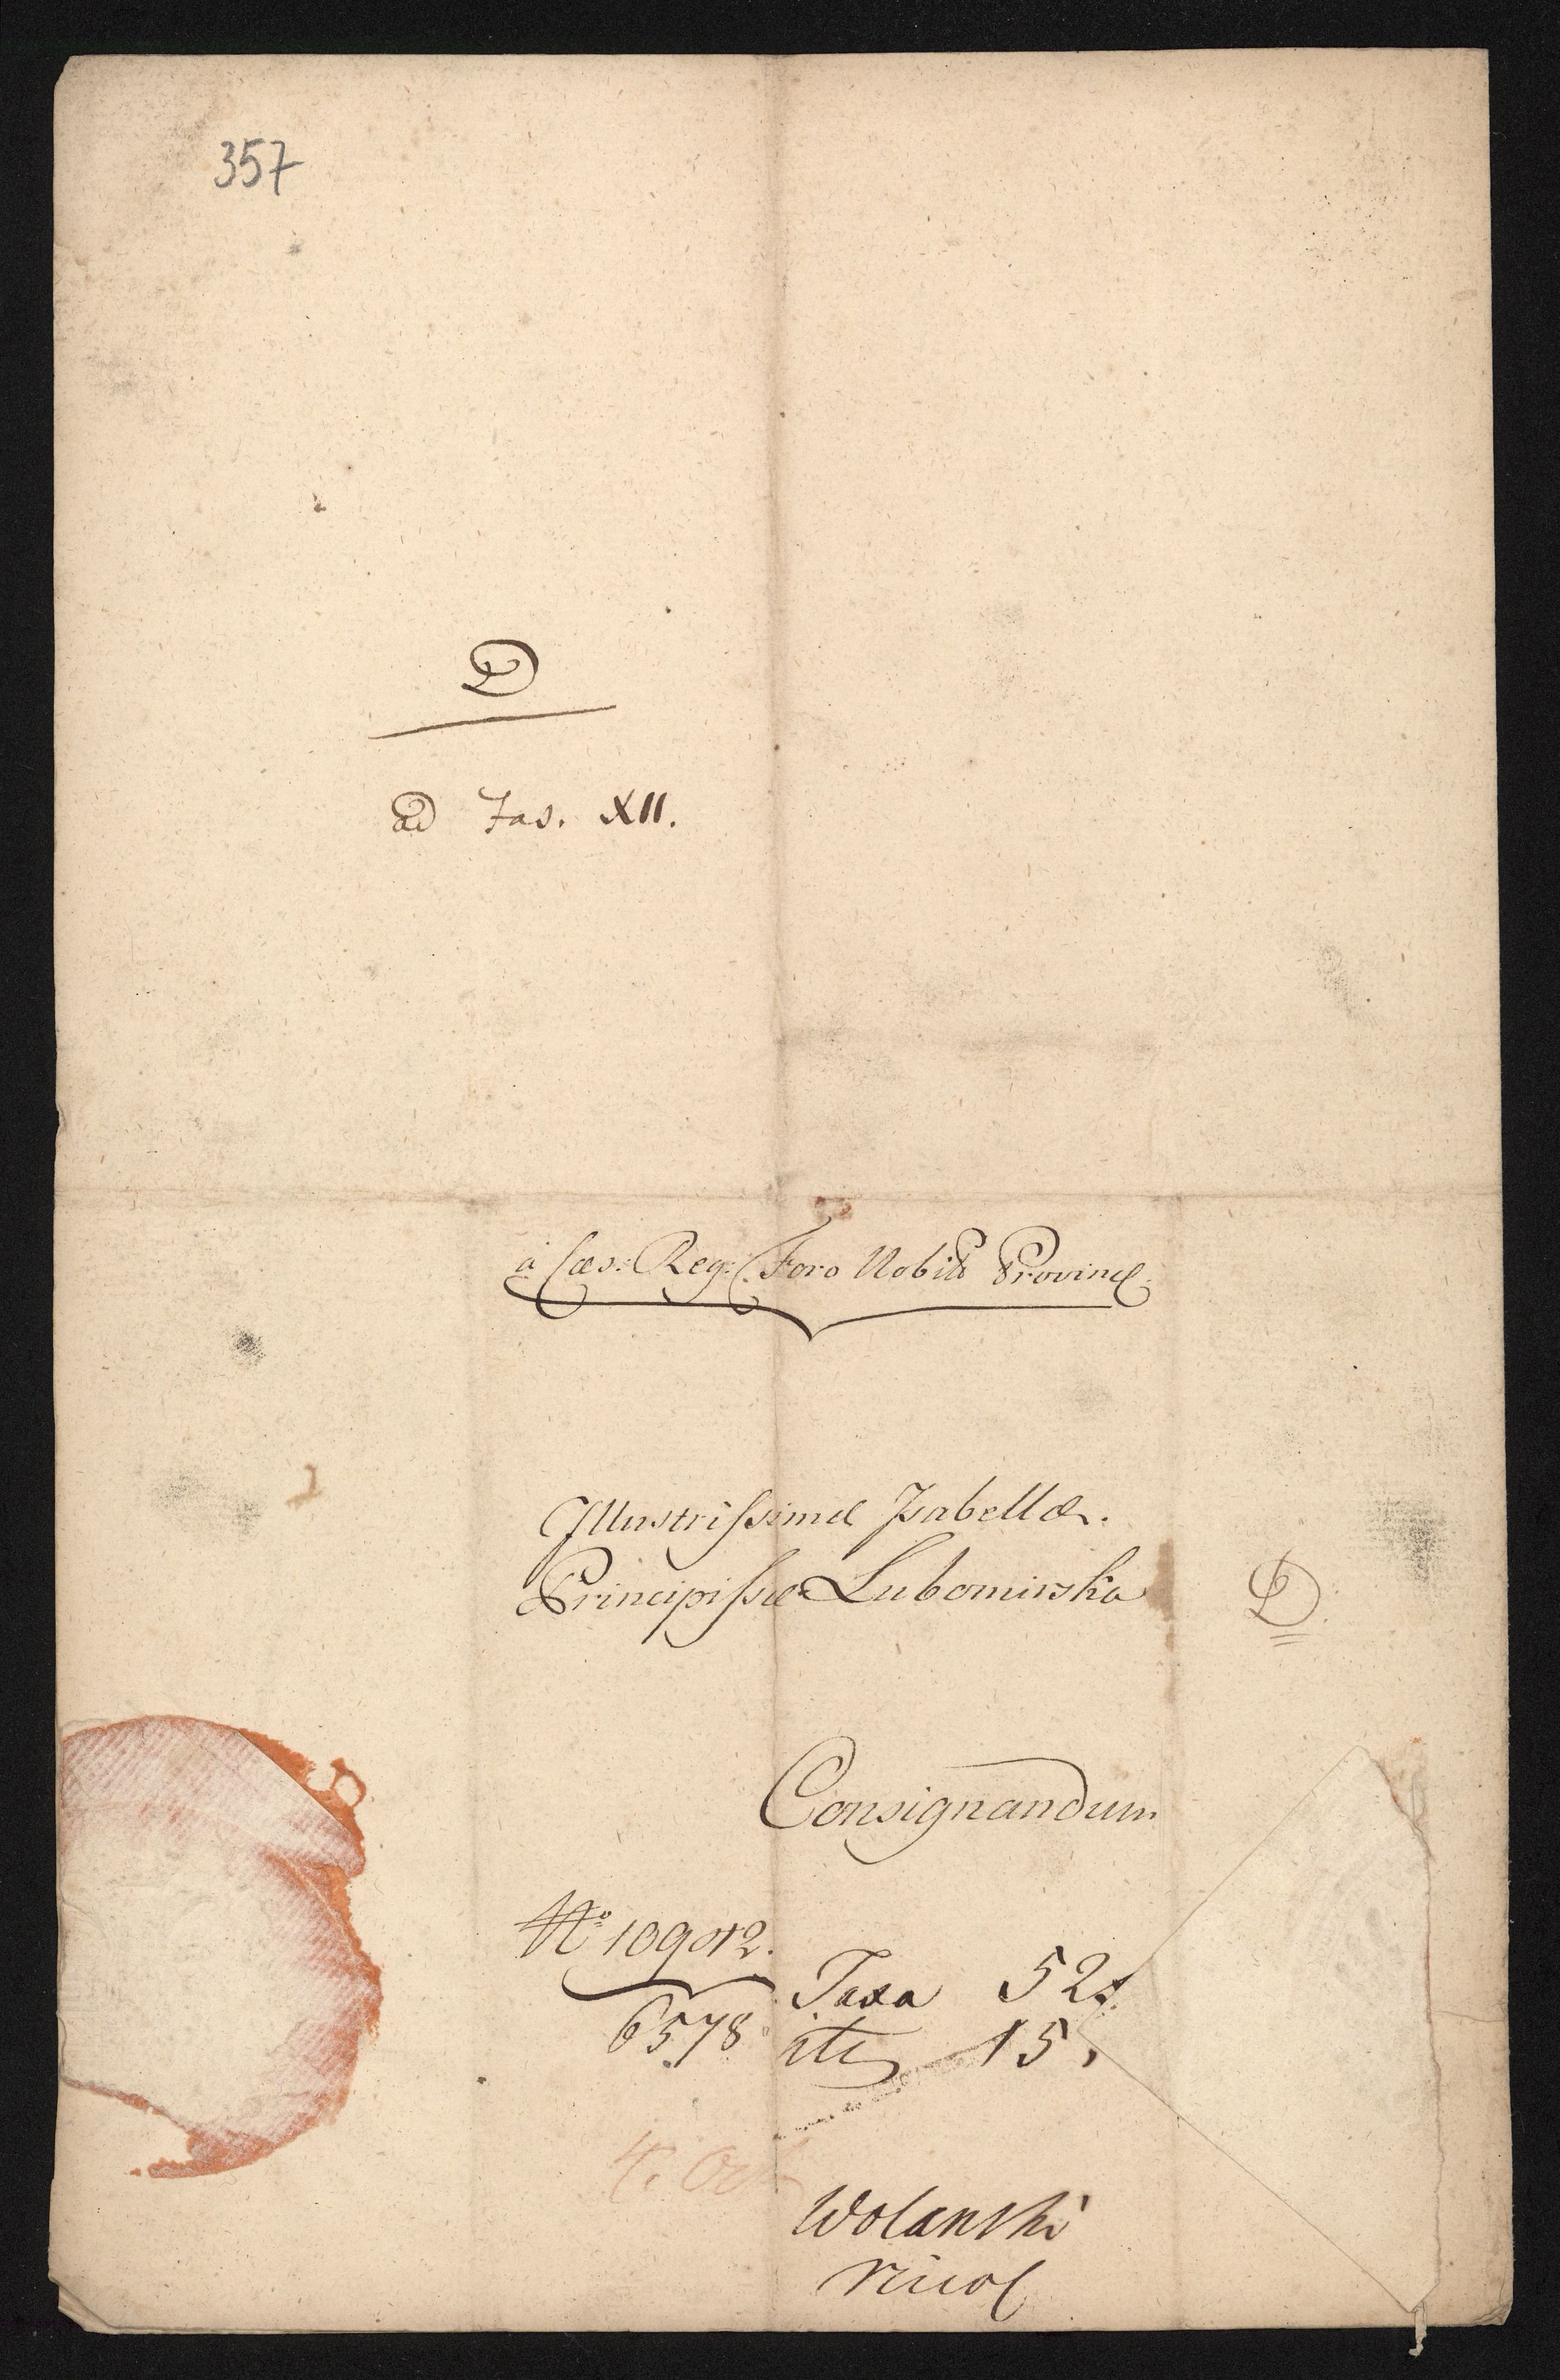 357
D
ad Fas. XII.
à Cæs: Reg: Foro Nobil: Provinc:
Illustrissimæ Isabellæ.
Principissæ Lubomirska
D.
Consignandum
No 10902.
6578
Taxa 52
15
4. Oct
Wolanski